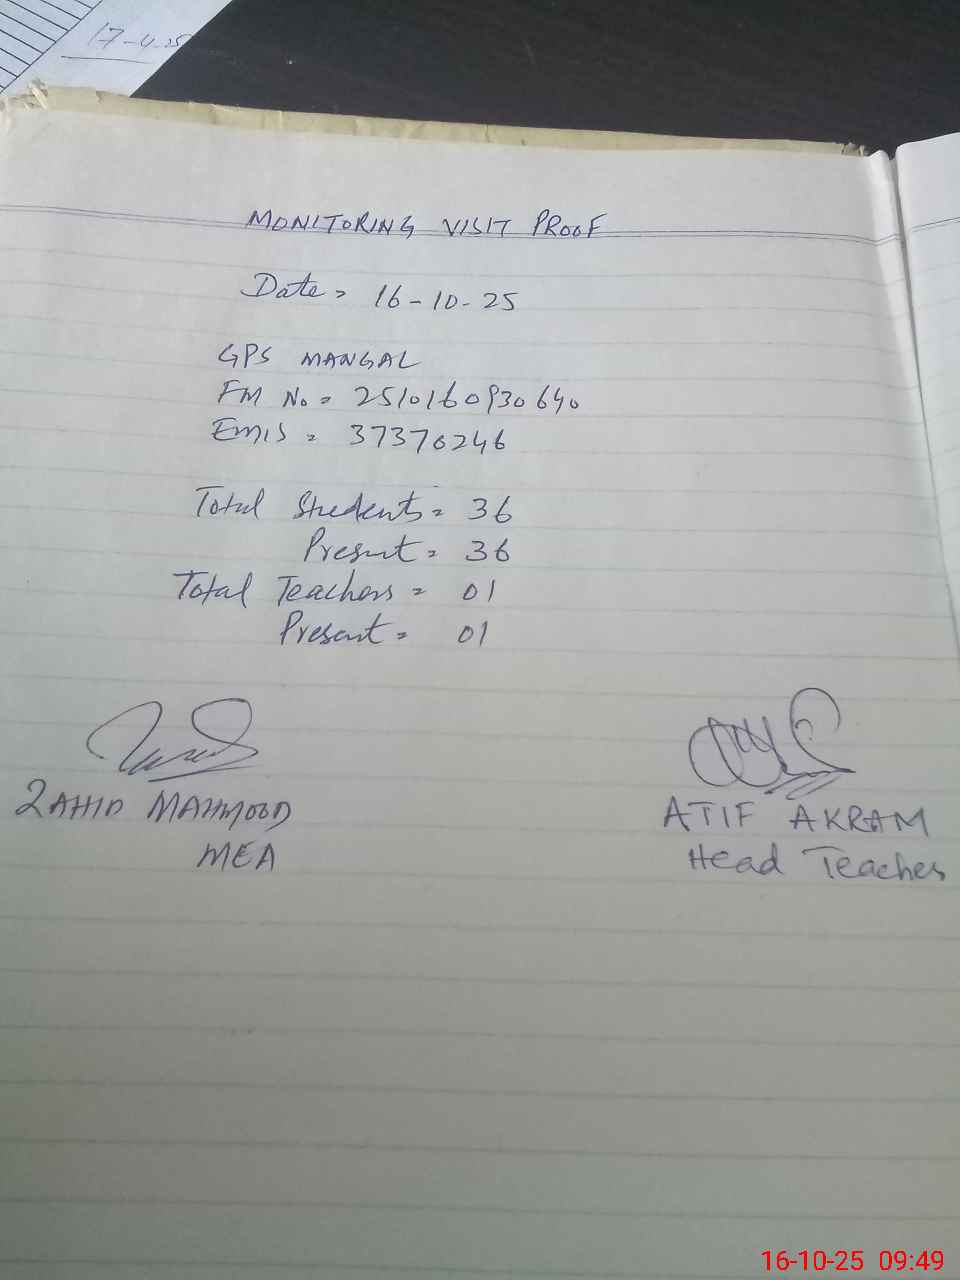 17-4-25
MONITORING VISIT PROOF
Date = 16-10-25
GPS MANGAL
FM No = 2510160930640
EMIS = 37370246
Total Students = 36
Present = 36
Total Teachers = 01
Present = 01
ZAHID MAHMOOD
MEA
ATIF AKRAM
Head Teacher
16-10-25 09:49